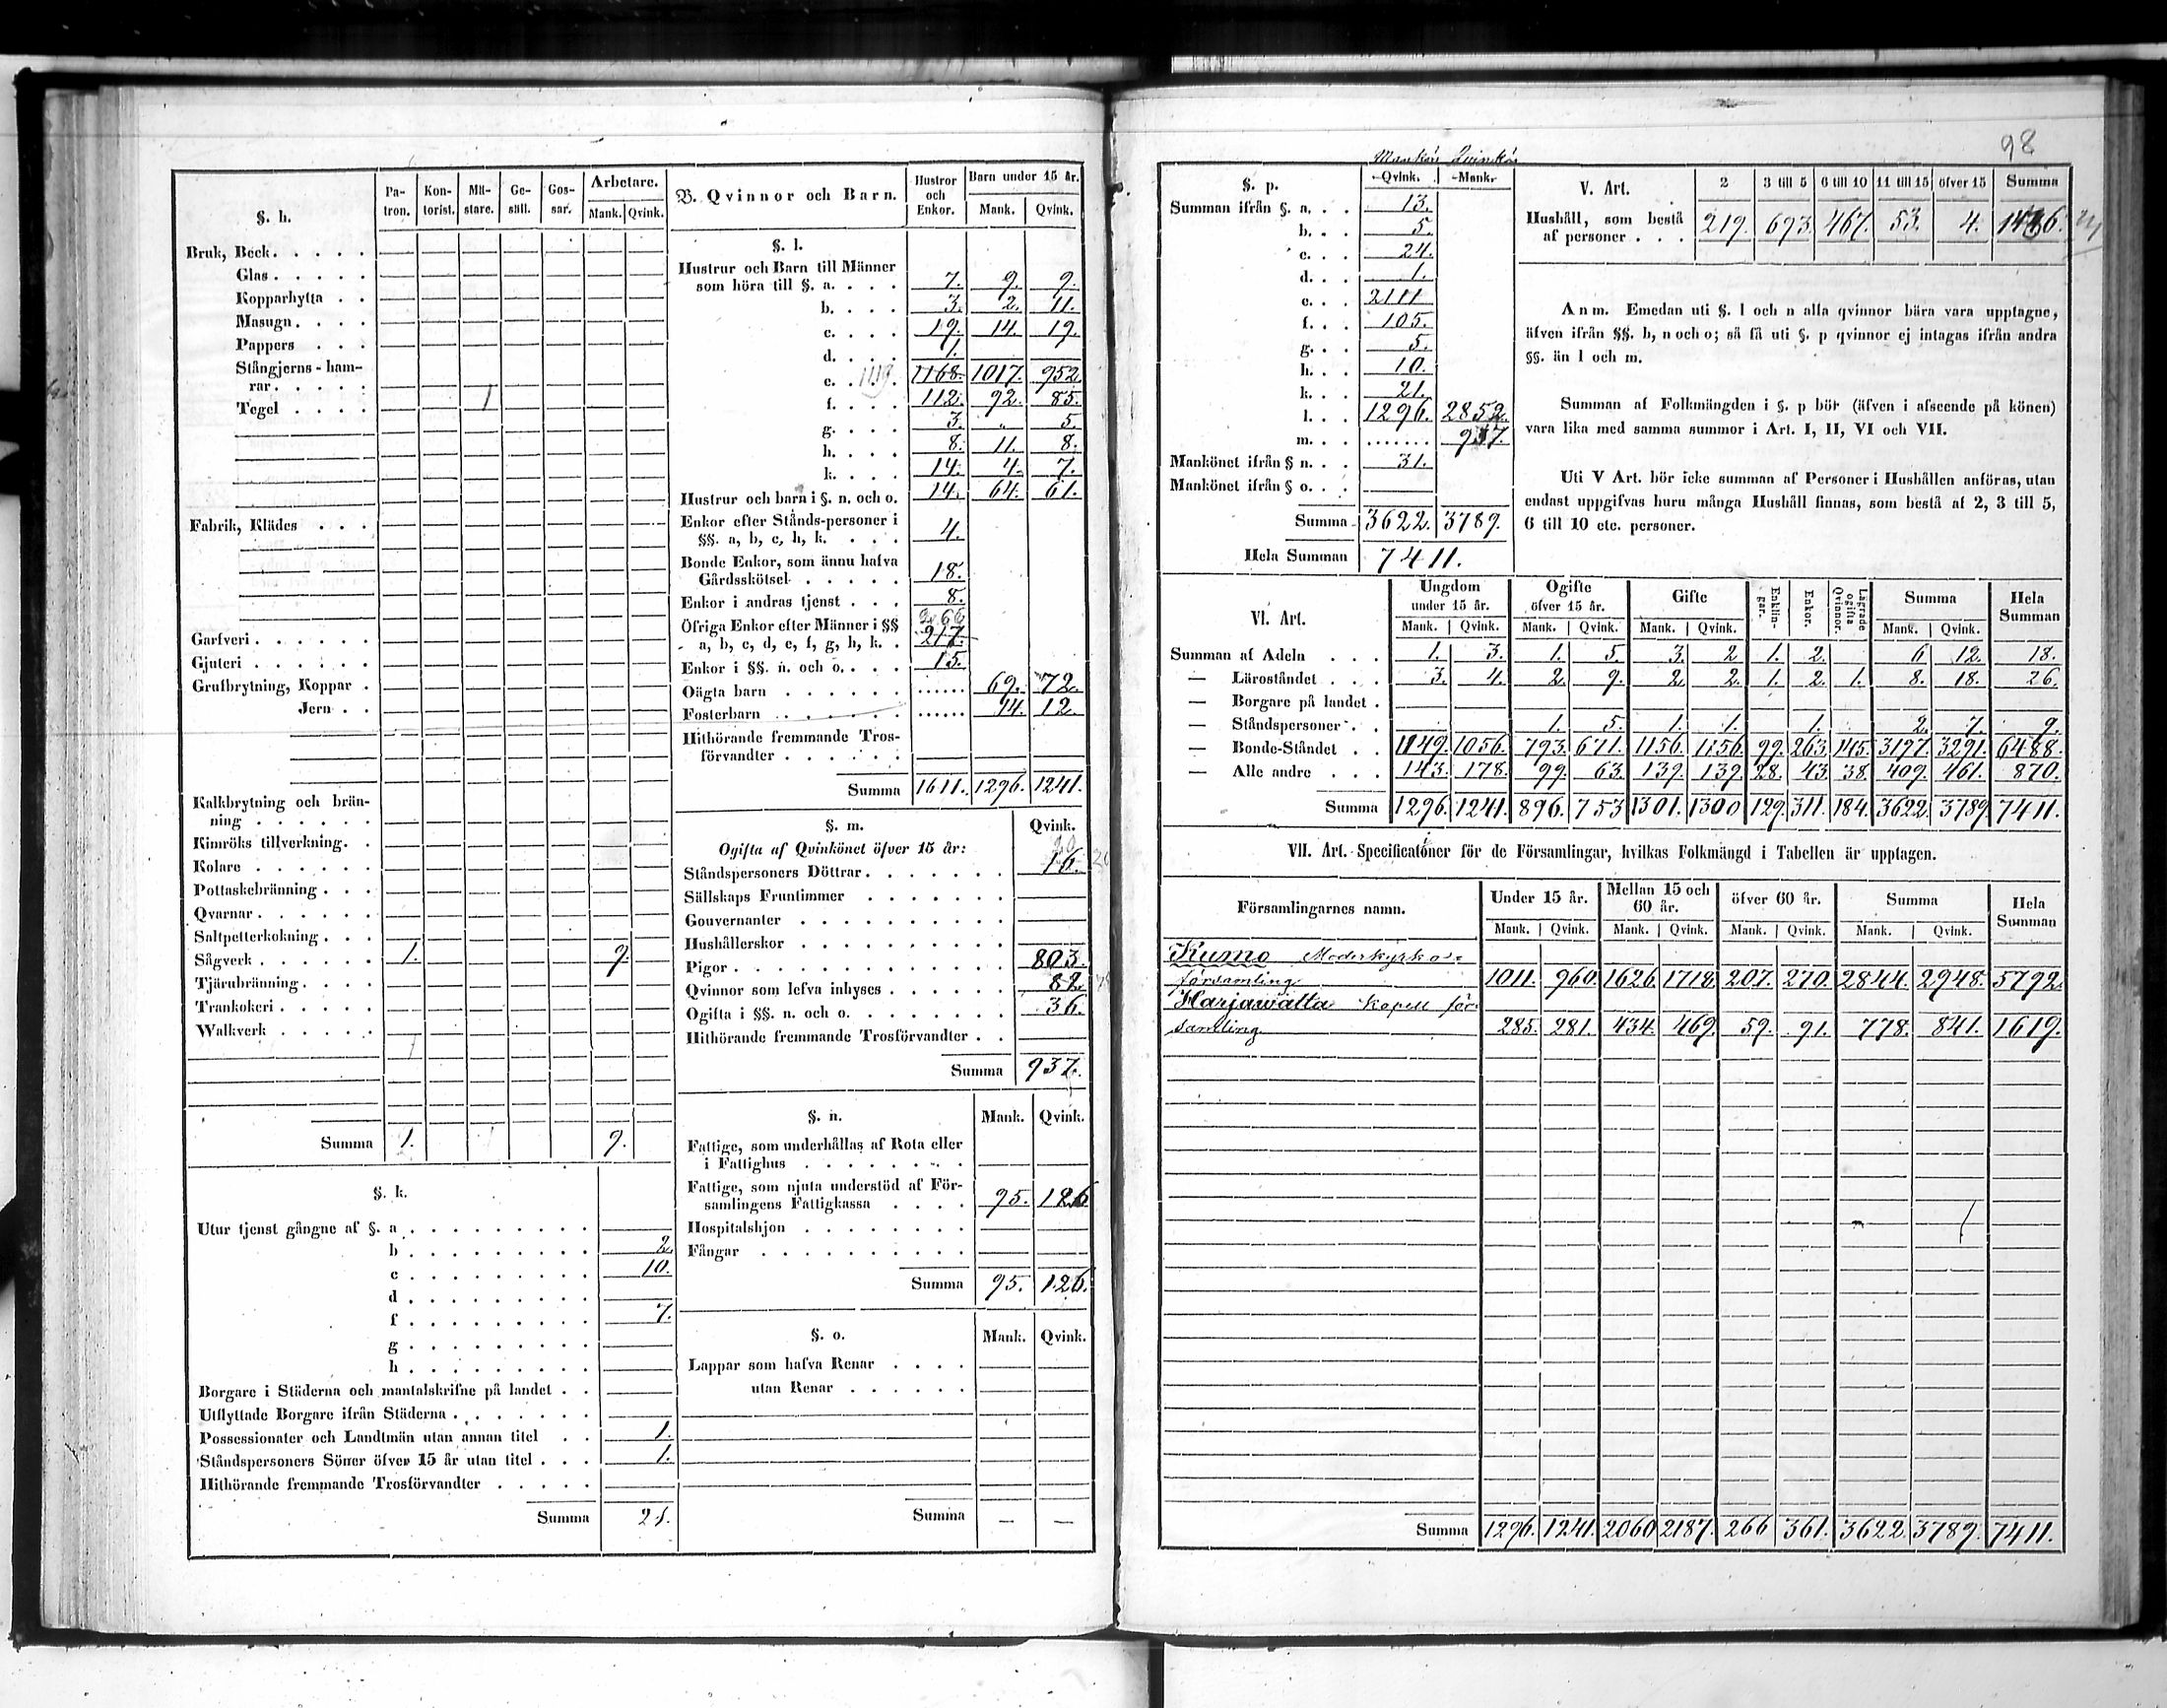 98
§. h. Pa-tron. Kon-torist. Mä-stare. Ge-säll. Gos-sar. Arbetare. Mank. Qvink.
Bruk, Beck . . . . .
Glas . . . . .
Kopparhytta . .
Masugn . . . .
Pappers . . .
Stångjerns-ham-
rar . . . . .
Tegel . . . . 1
Fabrik, Klädes . . .
Garfveri . . . . . .
Gjuteri . . . . . .
Grufbrytning, Koppar .
Jern . .
Kalkbrytning och brän-
ning . . . . . .
Kimröks tillverkning. .
Kolare . . . . . .
Pottaskebränning . . .
Qvarnar . . . . . .
Saltpetterkokning . . .
Sågverk . . . . . . 1. 9.
Tjärubränning . . . .
Trankokeri . . . . .
Walkverk . . . . .
Summa 1. 9.
§. k.
Utur tjenst gångne af §. a . . . . . . . . .
b . . . . . . . . . 2.
c . . . . . . . . . 10.
d . . . . . . . . .
f . . . . . . . . . 7.
g . . . . . . . . .
h . . . . . . . . .
Borgare i Städerna och mantalskrifne på landet . .
Utflyttade Borgare ifrån Städerna . . . . . . .
Possessionater och Landtmän utan annan titel . . 1.
Ståndspersoners Söner öfver 15 år utan titel . . . 1.
Hithörande fremmande Trosförvandter . . . . .
Summa 21.
B. Qvinnor och Barn. Hustror och Enkor. Barn under 15 år. Mank. Qvink.
§. l.
Hustrur och Barn till Männer
som höra till §. a. . . . 7. 9. 9.
b. . . . 3. 2. 11.
c. . . . 19. 14. 19.
d. . . . 1.
e. . 1168. 1017. 952
f. . . . 112. 92. 85.
g. . . . 3. „ 5.
h. . . . 8. 11. 8.
k. . . . 14. 4. 7.
Hustrur och barn i §. n. och o. 14. 64. 61.
Enkor efter Stånds-personer i
§§. a, b, c, h, k. . . . 4.
Bonde Enkor, som ännu hafva
Gårdsskötsel . . . . . 18.
Enkor i andras tjenst . . . 8.
Öfriga Enkor efter Männer i §§
a, b, c, d, e, f, g, h, k. . 217
Enkor i §§. n. och o. . . . 15.
Oägta barn . . . . . . ...... 69. 72.
Fosterbarn . . . . . . ...... 14. 12.
Hithörande fremmande Tros-
förvandter . . . . . .
Summa 1611. 1296. 1241.
§. m. Qvink.
Ogifta af Qvinkönet öfver 15 år:
Ståndspersoners Döttrar . . . . . . . 16.
Sällskaps Fruntimmer . . . . . . .
Gouvernanter . . . . . . . . . .
Hushållerskor . . . . . . . . . .
Pigor . . . . . . . . . . . . . 803.
Qvinnor som lefva inhyses . . . . . . 82.
Ogifta i §§. n. och o. . . . . . . . 36.
Hithörande fremmande Trosförvandter . .
Summa 937.
§. n. Mank. Qvink.
Fattige, som underhållas af Rota eller
i Fattighus . . . . . . . .
Fattige, som njuta understöd af För-
samlingens Fattigkassa . . . . 95. 126
Hospitalshjon . . . . . . . .
Fångar . . . . . . . . . .
Summa 95. 126.
§. o. Mank. Qvink.
Lappar som hafva Renar . . . .
utan Renar . . . . . .
Summa — —
Mankön Qvinkön
§. p. Qvink. Mank.
Summan ifrån §. a. . . 13.
b. . . 5.
c. . . 24.
d. . . 1.
e. . . 2111
f. . . 105.
g. . . 5.
h. . . 10.
k. . . 21.
l. . . 1296. 2852.
m. . . ....... 937.
Mankönet ifrån § n. . . 31.
Mankönet ifrån § o. . .
Summa 3622. 3789.
Hela Summan 7411.
V. Art. 2 3 till 5 6 till 10 11 till 15 öfver 15 Summa
Hushåll, som bestå
af personer . . . 219. 693. 467. 53. 4. 1436.
Anm. Emedan uti §. l och n alla qvinnor böra vara upptagne,
äfven ifrån §§. b, n och o; så få uti §. p qvinnor ej intagas ifrån andra
§§. än l och m.
Summan af Folkmängden i §. p bör (äfven i afseende på könen)
vara lika med samma summor i Art. I, II, VI och VII.
Uti V Art. bör icke summan af Personer i Hushållen anföras, utan
endast uppgifvas huru många Hushåll finnas, som bestå af 2, 3 till 5,
6 till 10 etc. personer.
VI. Art. Ungdom under 15 år. Mank. Qvink. Ogifte öfver 15 år. Mank. Qvink. Gifte Mank. Qvink. Enklin-gar. Enkor. Lägrade ogifta Qvinnor. Summa Mank. Qvink. Hela Summan
Summan af Adeln . . . 1. 3. 1. 5. 3. 2 1. 2. 6 12. 18.
— Läroståndet . . . 3. 4. 2. 9. 2. 2. 1. 2. 1. 8. 18. 26.
— Borgare på landet .
— Ståndspersoner . . 1. 5. 1. 1. 1. 2. 7. 9.
— Bonde-Ståndet . . 1149. 1056. 793. 671. 1156. 1156. 99. 263. 145. 3197. 3291. 6488.
— Alle andre . . . 143. 178. 99. 63. 139. 139. 28. 43. 38. 409. 461. 870.
Summa 1296. 1241. 896. 753 1301. 1300 129. 311. 184. 3622. 3789 7411.
VII. Art. Specificationer för de Församlingar, hvilkas Folkmängd i Tabellen är upptagen.
Församlingarnes namn. Under 15 år. Mank. Qvink. Mellan 15 och 60 år. Mank. Qvink. öfver 60 år. Mank. Qvink. Summa Mank. Qvink. Hela Summan
Kumo Moderkyrko-
församling 1011. 960. 1626. 1718. 207. 270. 2844. 2948. 5792.
Harjawalta Kapell för
samling 285. 281. 434. 469. 59. 91. 778. 841. 1619.
Summa 1296. 1241. 2060 2187. 266 361. 3622. 3789. 7411.